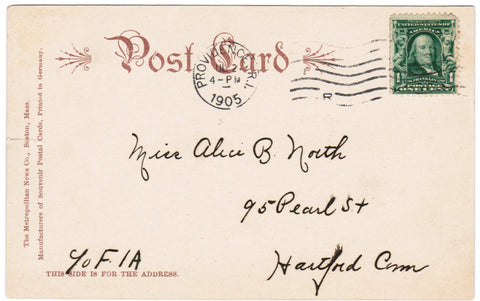 Post Card
PROVIDENCE, R.I.
4-PM
1905
R
1 1
The Metropolitan News Co., Boston, Mass.
Manufacturers of Souvenir Postal Cards, Printed in Germany.
Miss Alice B. North
95 Pearl St
Hartford Conn
THIS SIDE IS FOR THE ADDRESS.